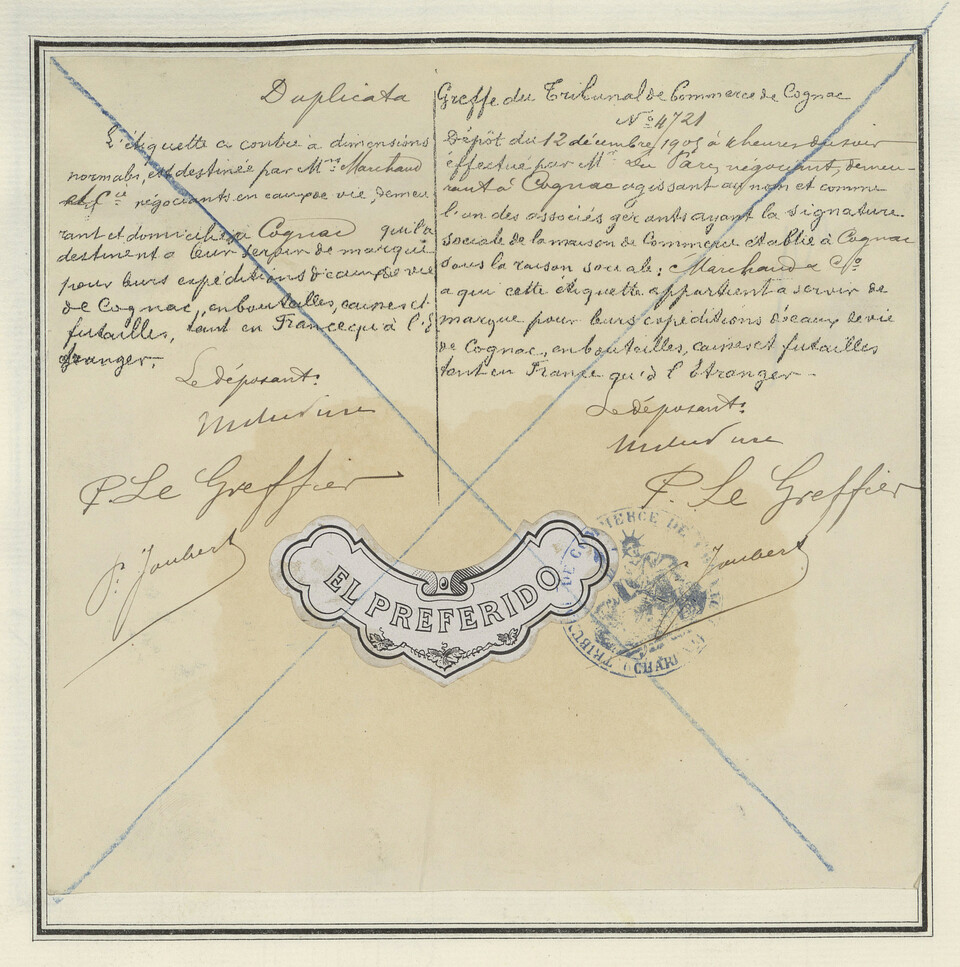 Duplicata
L'étiquette ci contre à dimensions
normales, est destinée par M.rs Marchand
et Cie négociants en eaux de vie, demeu
rant et domiciliés à Cognac qui la
destinent à leur servir de marque
pour leurs expéditions d'eaux de vie
de Cognac, en bouteilles, caisses et
futailles, tant en France qu'à l'É
tranger.
Le déposant:
P. Le Greffier
P. Joubert
Greffe du Tribunal de Commerce de Cognac
No 4721
Dépôt du 12 décembre 1905 à heures du soir
effectué par Mr Du Parc, négociant, demeu-
rant à Cognac agissant au nom et comme
l'un des associés gérants ayant la signature
sociale de la maison de Commerce établie à Cognac
sous la raison sociale: Marchand & Co
a qui cette étiquette appartient a servir de
marque pour leurs expéditions d'eaux de vie
de Cognac, en bouteilles, caisses et futailles
tant en France qu'à l'Étranger.
Le déposant:
P. Le Greffier
Joubert
EL PREFERIDO
COMMERCE DE
TRIBU
CHAR